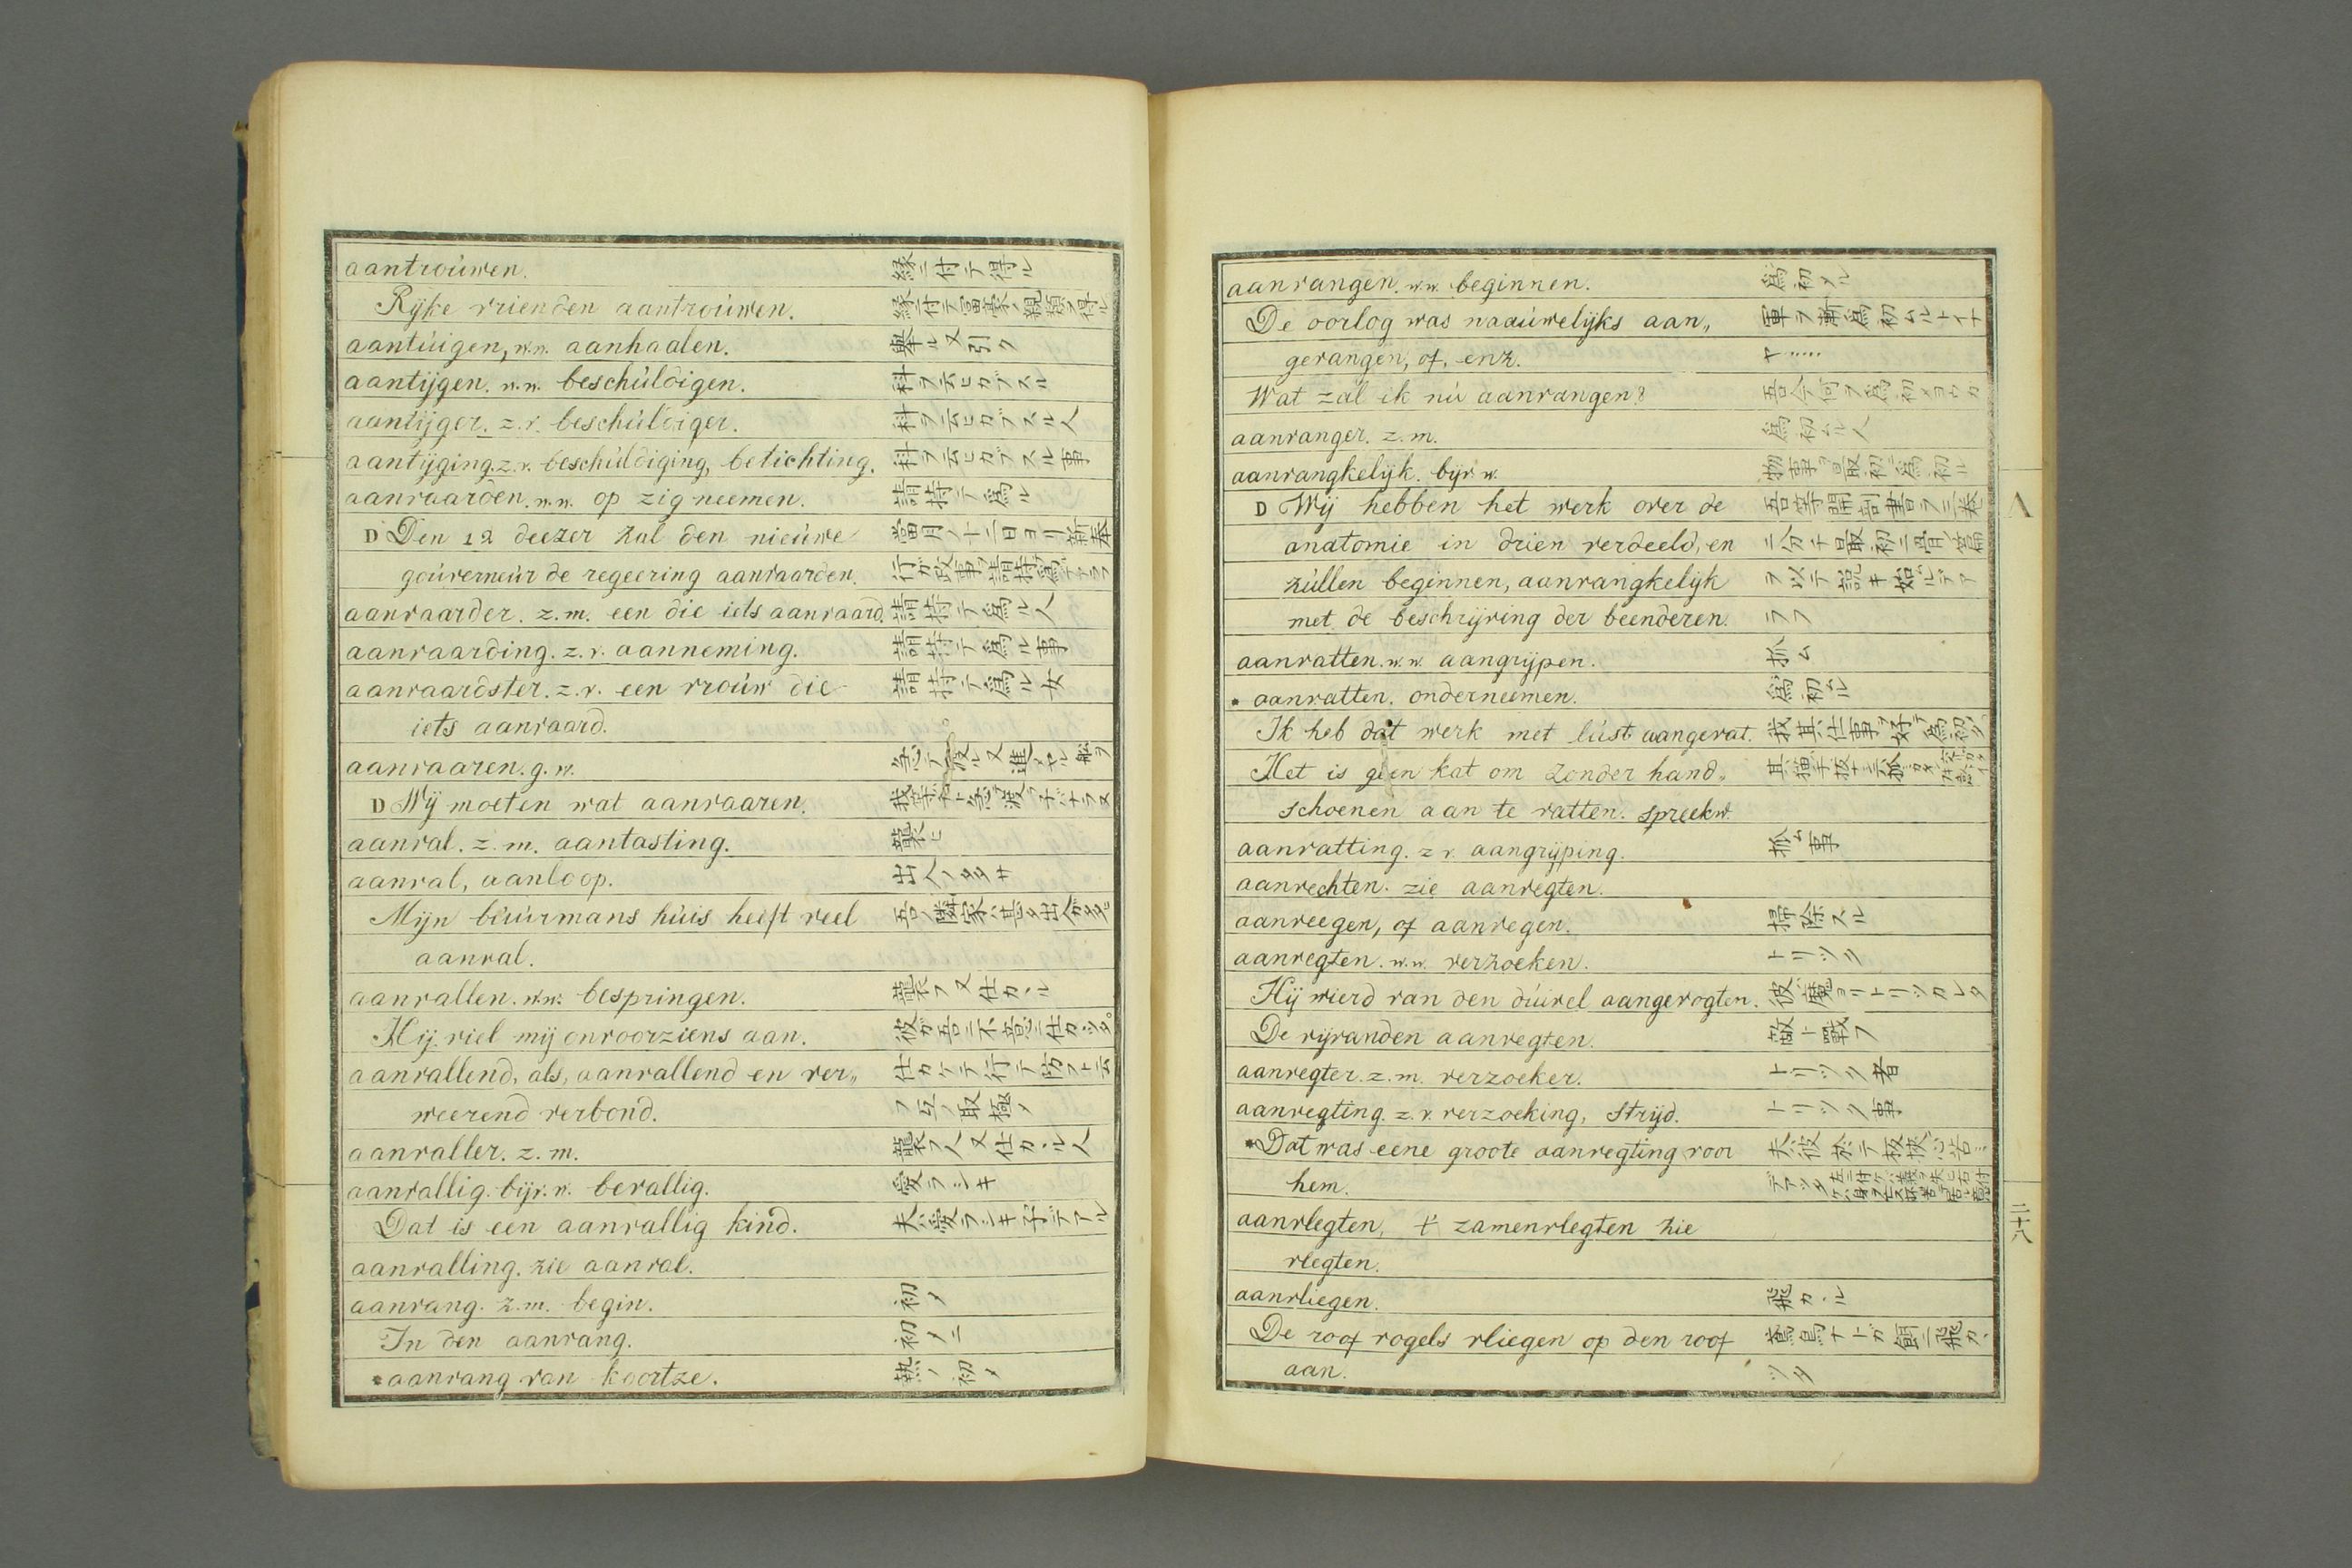 aantroúwen. 縁ニ付テ得ル
Rijke vrienden aantroúwen. 縁ニ付テ富家ノ親類ヲ得ル
aantúigen, w.w. aanhaalen. 擧ル又引ク
aantijgen. w.w. beschúldigen. 科ヲ云ヒカブスル
aantijger. z.v. beschúldiger. 科ヲ云ヒカブスル人
aantijging. z.v. beschúldiging, betichting. 科ヲ云ヒカブスル事
aanvaarden. w.w. op zig neemen. 請持テ爲ル
D Den 12 deezer zal den nieúwe 當月ノ十二日ヨリ新奉
goúverneúr de regeering aanvaarden.
aanvaarder. z.m. een die iets aanvaard. 請持テ爲ル人
aanvaarding. z.v. aanneming. 請持テ爲ル事
aanvaardster. z.v. een vroúw die 請持テ爲ル女
iets aanvaard.
aanvaaren. g.w.
D Wij moeten wat aanvaaren.
aanval. z.m. aantasting. 襲ヒ
aanval, aanloop. 出入ノ多サ
Mijn búúrmans húis heeft veel
aanval.
aanvallen. w.w. bespringen. 襲フ又仕カヽル
Hij viel mij onvoorziens aan. 彼ガ吾ニ不意ニ仕カヽツタ。
aanvallend, als, aanvallend en ver„ 仕カケテ行テ防フト云
weerend verbond. フ互ノ取極ノ
aanvaller. z.m. 襲フ人又仕カヽル人
aanvallig. bijv.n. bevallig. 愛ラシキ
Dat is een aanvallig kind. 夫ハ愛ラシキ子デアル
aanvalling. zie aanval.
aanvang. z.m. begin. 初メ
In den aanvang. 初メニ
*aanvang van koortze. 熱ノ初メ
aanvangen. w.w. beginnen. 爲初メル
De oorlog was naaúwelijks aan„ 軍ヲ漸爲初ムルトイナ
gevangen, of, enz. ヤ……
Wat zal ik nú aanvangen? 吾今何ヲ爲初メヨウカ
aanvanger. z.m. 爲初ムル人
aanvangkelijk. bijv.w.
D Wij hebben het werk over de
anatomie in drien verdeeld, en
zúllen beginnen, aanvangkelijk ヲ以テ説キ始ルデア
met de beschrijving der beenderen. ラフ
aanvatten. w.w. aangrijpen. 抓ム
* aanvatten. onderneemen. 爲初ムル
Ik heb dat werk met lúst aangevat. 我其仕事ヲ好テ爲初メタ
Het is geen kat om zonder hand„
schoenen aan te vatten. spreekw.
aanvatting. z.v. aangrijping. 抓ム事
aanvechten. zie aanvegten.
aanveegen, of aanvegen. 掃除スル
aanvegten. w.w. verzoeken. トリツク
Hij wierd van den dúivel aangevogten. 彼ハ魔ヨリトリツカレタ
De vijvanden aanvegten. 敵ト戰フ
aanvegter. z.m. verzoeker. トリツク者
aanvegting. z.v. verzoeking, strijd. トリツク事
*Dat was eene groote aanvegting voor
hem.
aanvlegten, t' zamenvlegten zie
vlegten.
aanvliegen. 飛カヽル
De roof vogels vliegen op den roof 鳶鳥ナドガ餌ニ飛カヽ
aan. ツタ
Λ
二十八